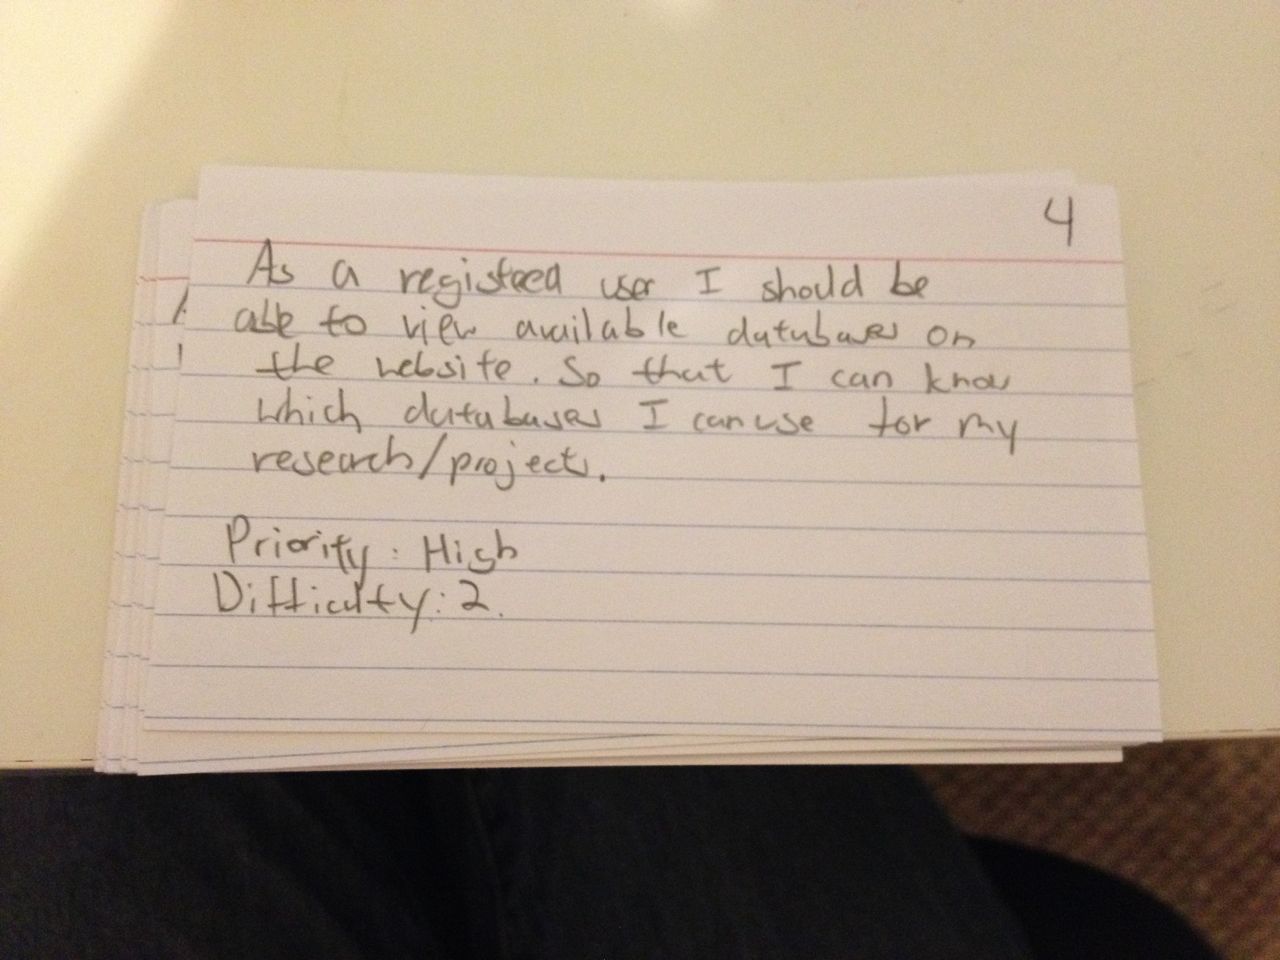 4
As a registered user I should be
able to view available databases on
the website. So that I can know
which databases I can use for my
research/projects.
Priority: High
Difficulty: 2.